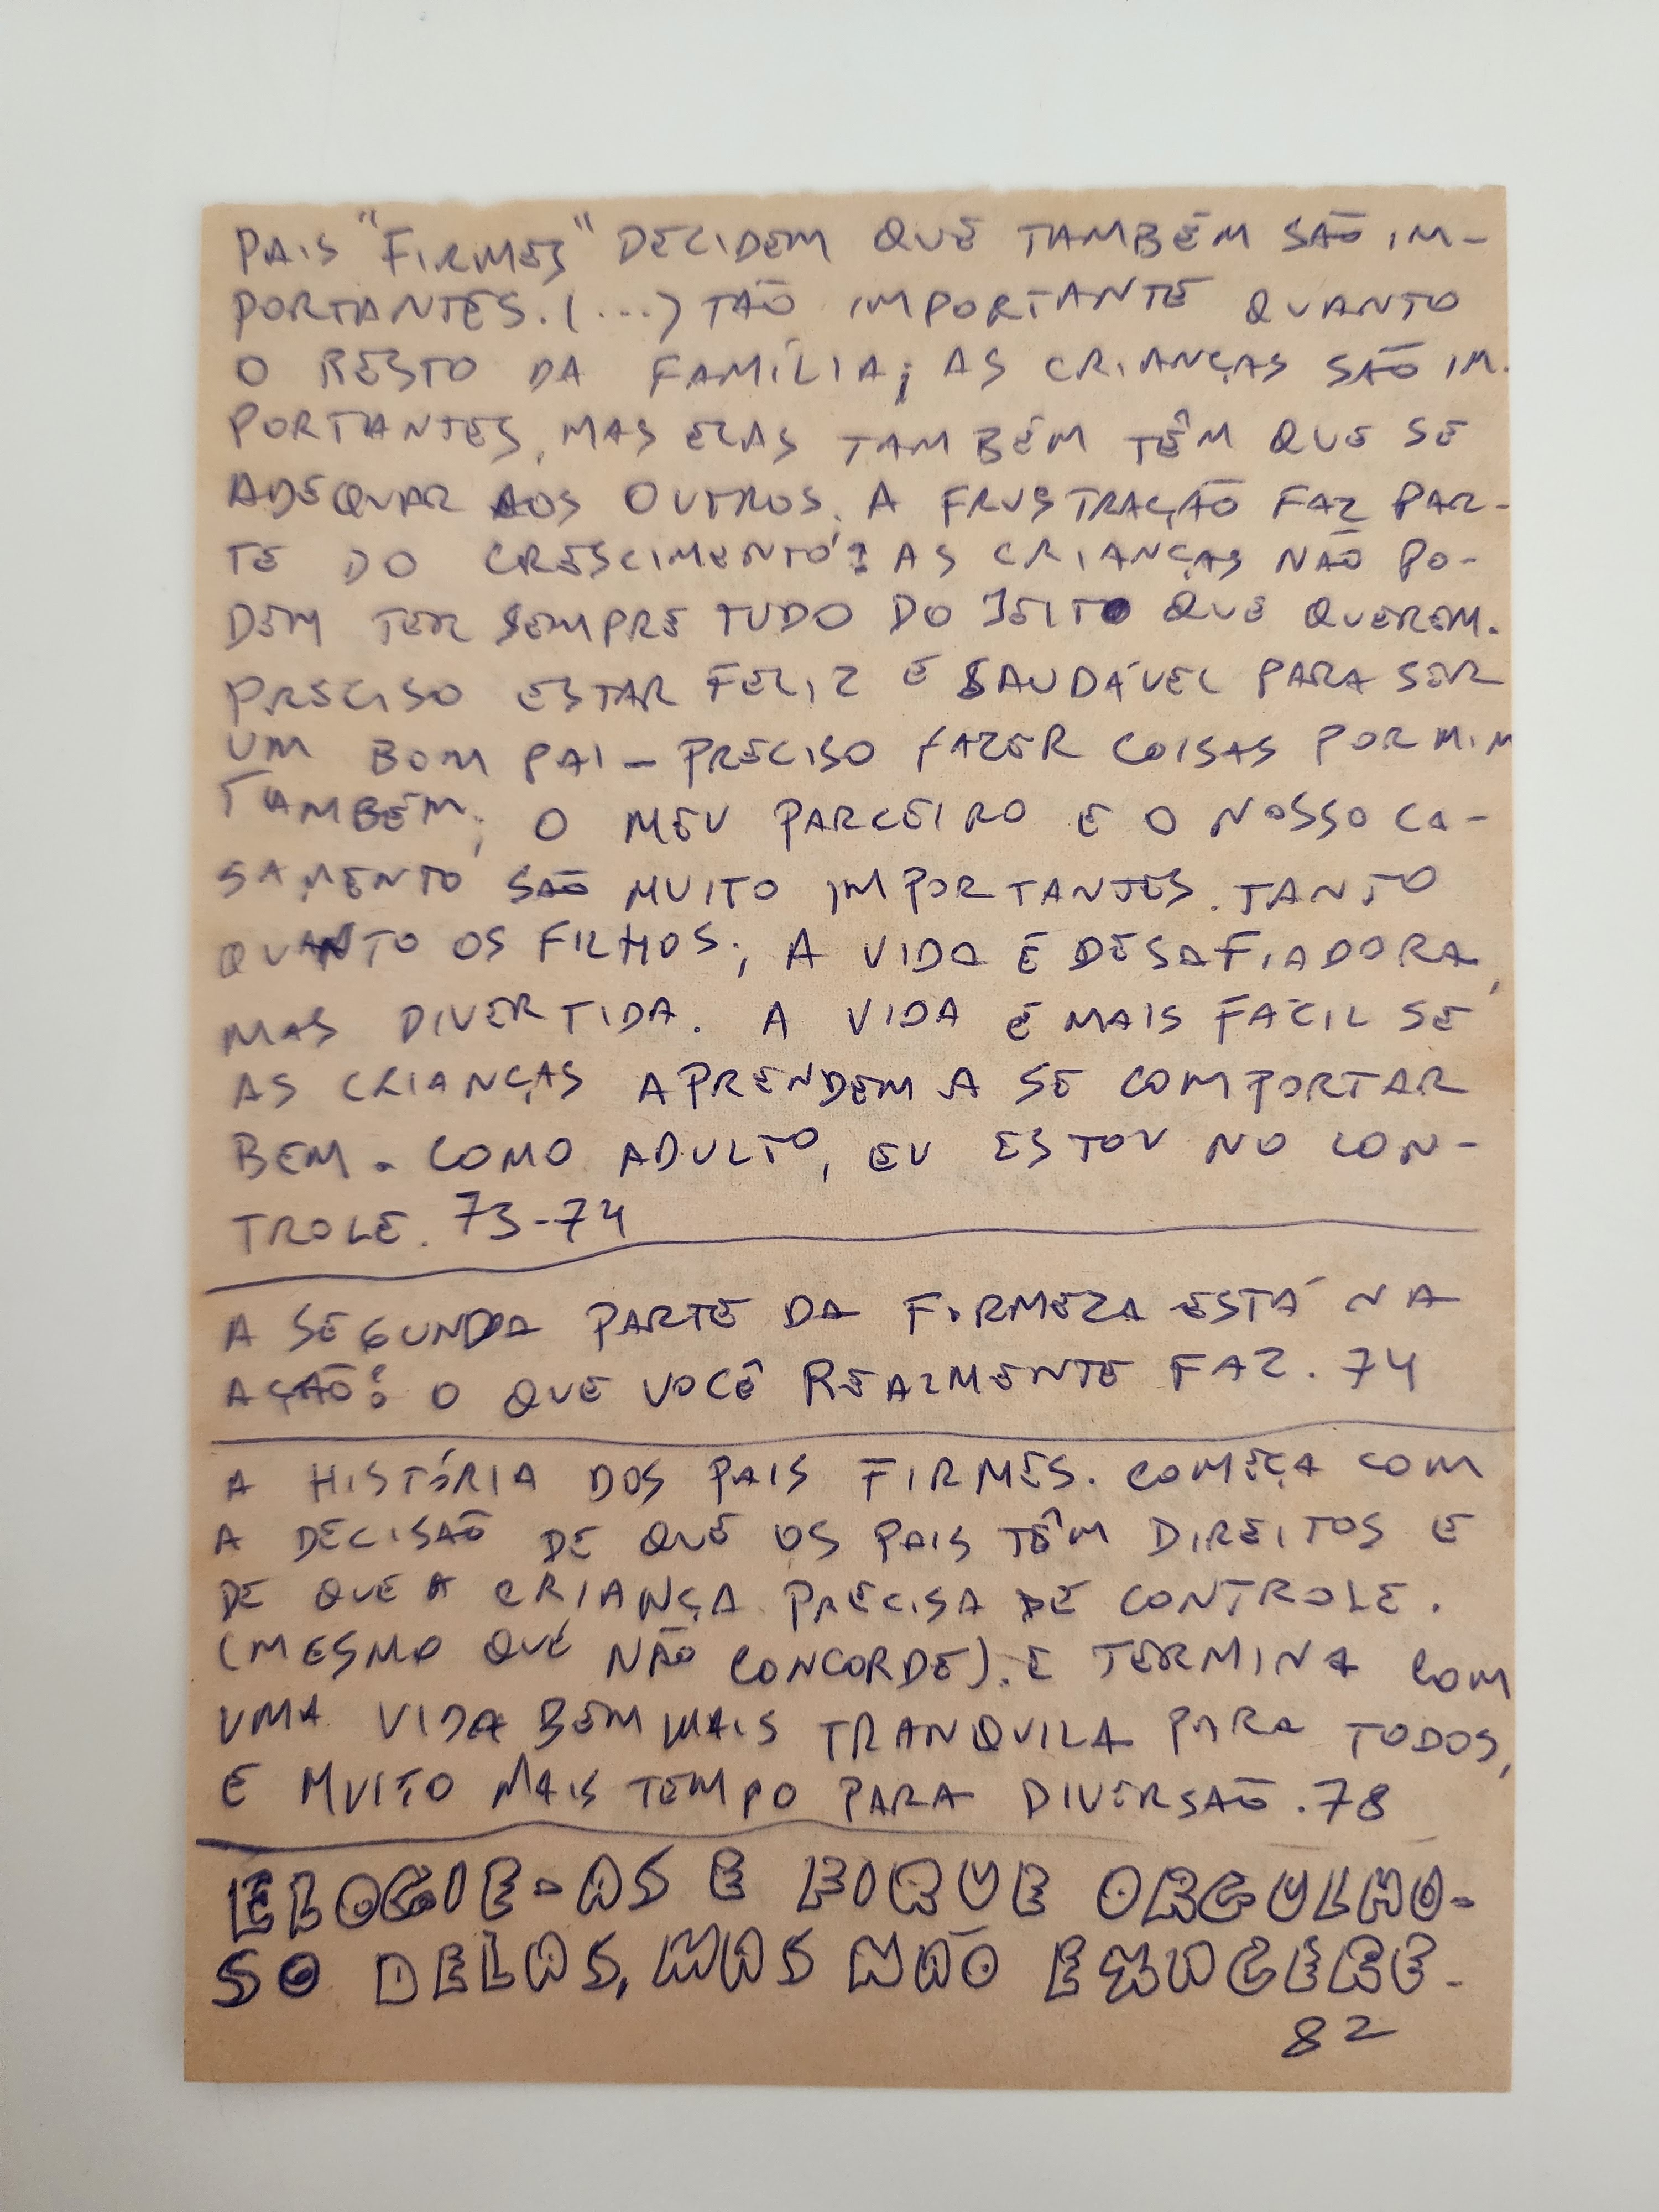 PAIS "FIRMES" DECIDEM QUE TAMBÉM SÃO IM-
PORTANTES. (...) TÃO IMPORTANTE QUANTO
O RESTO DA FAMÍLIA; AS CRIANÇAS SÃO IM-
PORTANTES, MAS ELAS TAMBÉM TÊM QUE SE
ADEQUAR AOS OUTROS. A FRUSTRAÇÃO FAZ PAR-
TE DO CRESCIMENTO: AS CRIANÇAS NÃO PO-
DEM TER SEMPRE TUDO DO JEITO QUE QUEREM.
PRECISO ESTAR FELIZ E SAUDÁVEL PARA SER
UM BOM PAI - PRECISO FAZER COISAS POR MIM
TAMBÉM; O MEU PARCEIRO E O NOSSO CA-
SAMENTO SÃO MUITO IMPORTANTES. TANTO
QUANTO OS FILHOS; A VIDA É DESAFIADORA,
MAS DIVERTIDA. A VIDA É MAIS FÁCIL SE
AS CRIANÇAS APRENDEM A SE COMPORTAR
BEM. COMO ADULTO, EU ESTOU NO CON-
TROLE. 73-74
A SEGUNDA PARTE DA FIRMEZA ESTÁ NA
AÇÃO: O QUE VOCÊ REALMENTE FAZ. 74
A HISTÓRIA DOS PAIS FIRMES. COMEÇA COM
A DECISÃO DE QUE OS PAIS TÊM DIREITOS E
DE QUE A CRIANÇA PRECISA DE CONTROLE.
(MESMO QUE NÃO CONCORDE). E TERMINA COM
UMA VIDA BEM MAIS TRANQUILA PARA TODOS,
E MUITO MAIS TEMPO PARA DIVERSÃO. 78
ELOGIE-AS E FIQUE ORGULHO-
SO DELAS, MAS NÃO EXAGERE.
82